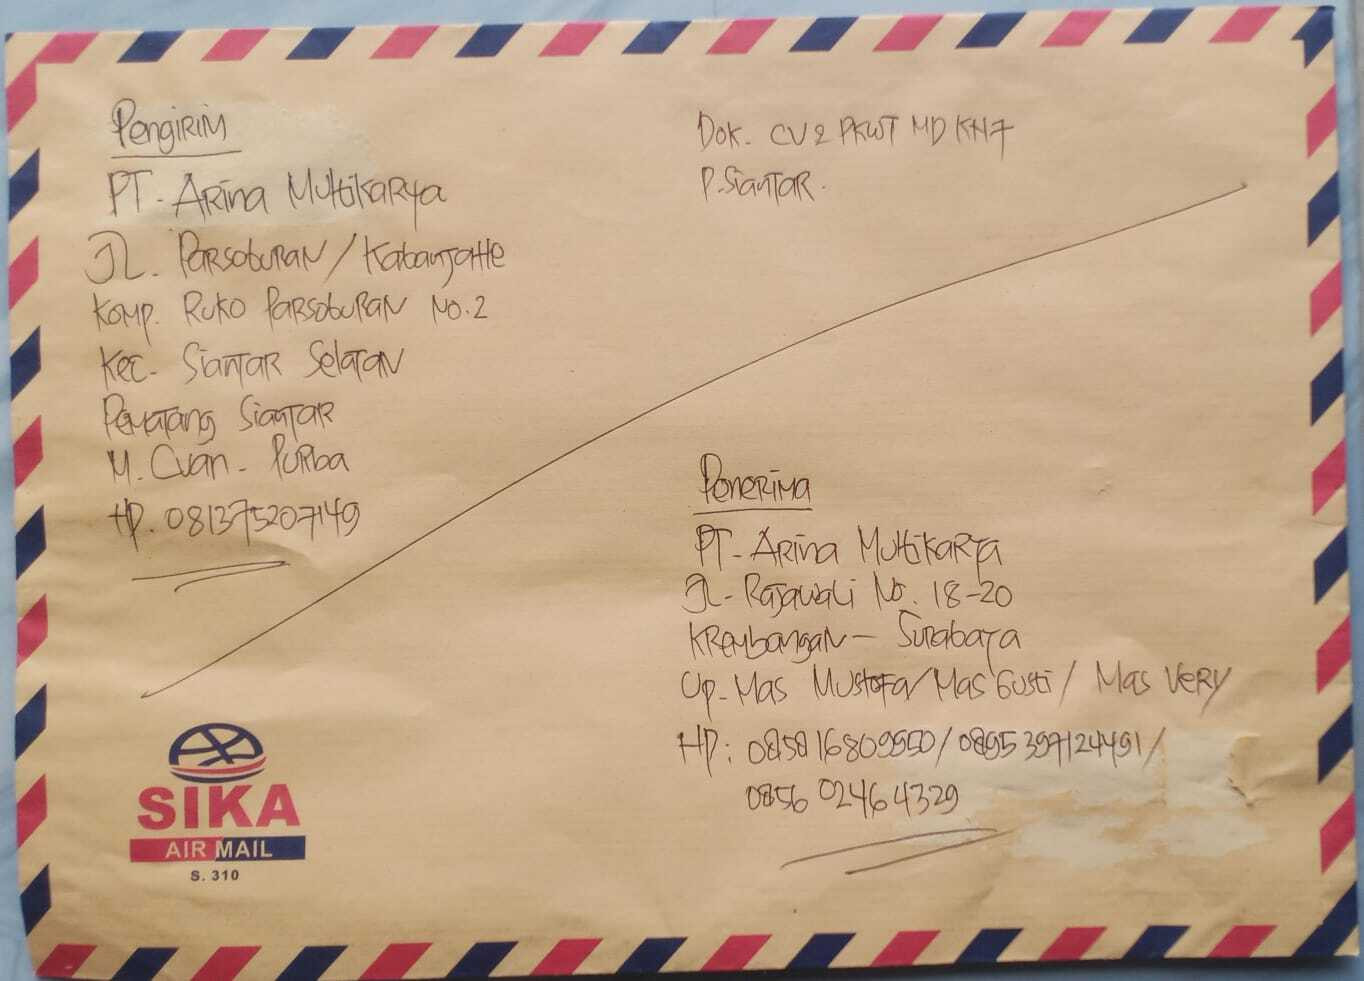 Pengirim
PT. Arina Multikarya
JL. Parsoburan / Kabanjahe
Komp. Ruko Parsoburan No. 2
Kec. Siantar Selatan
Pematang Siantar
M. Cvan. Purba
HP. 081375207149
Dok. CV 2 PKWT MD KN7
P. Siantar.
Penerima
PT. Arina Multikarya
JL. Rajawali No. 18-20
Krembangan - Surabaya
Up. Mas Mustofa / Mas Gusti / Mas Very
HP: 085816809950 / 0895397124491 /
085602464329
SIKA
AIR MAIL
S. 310